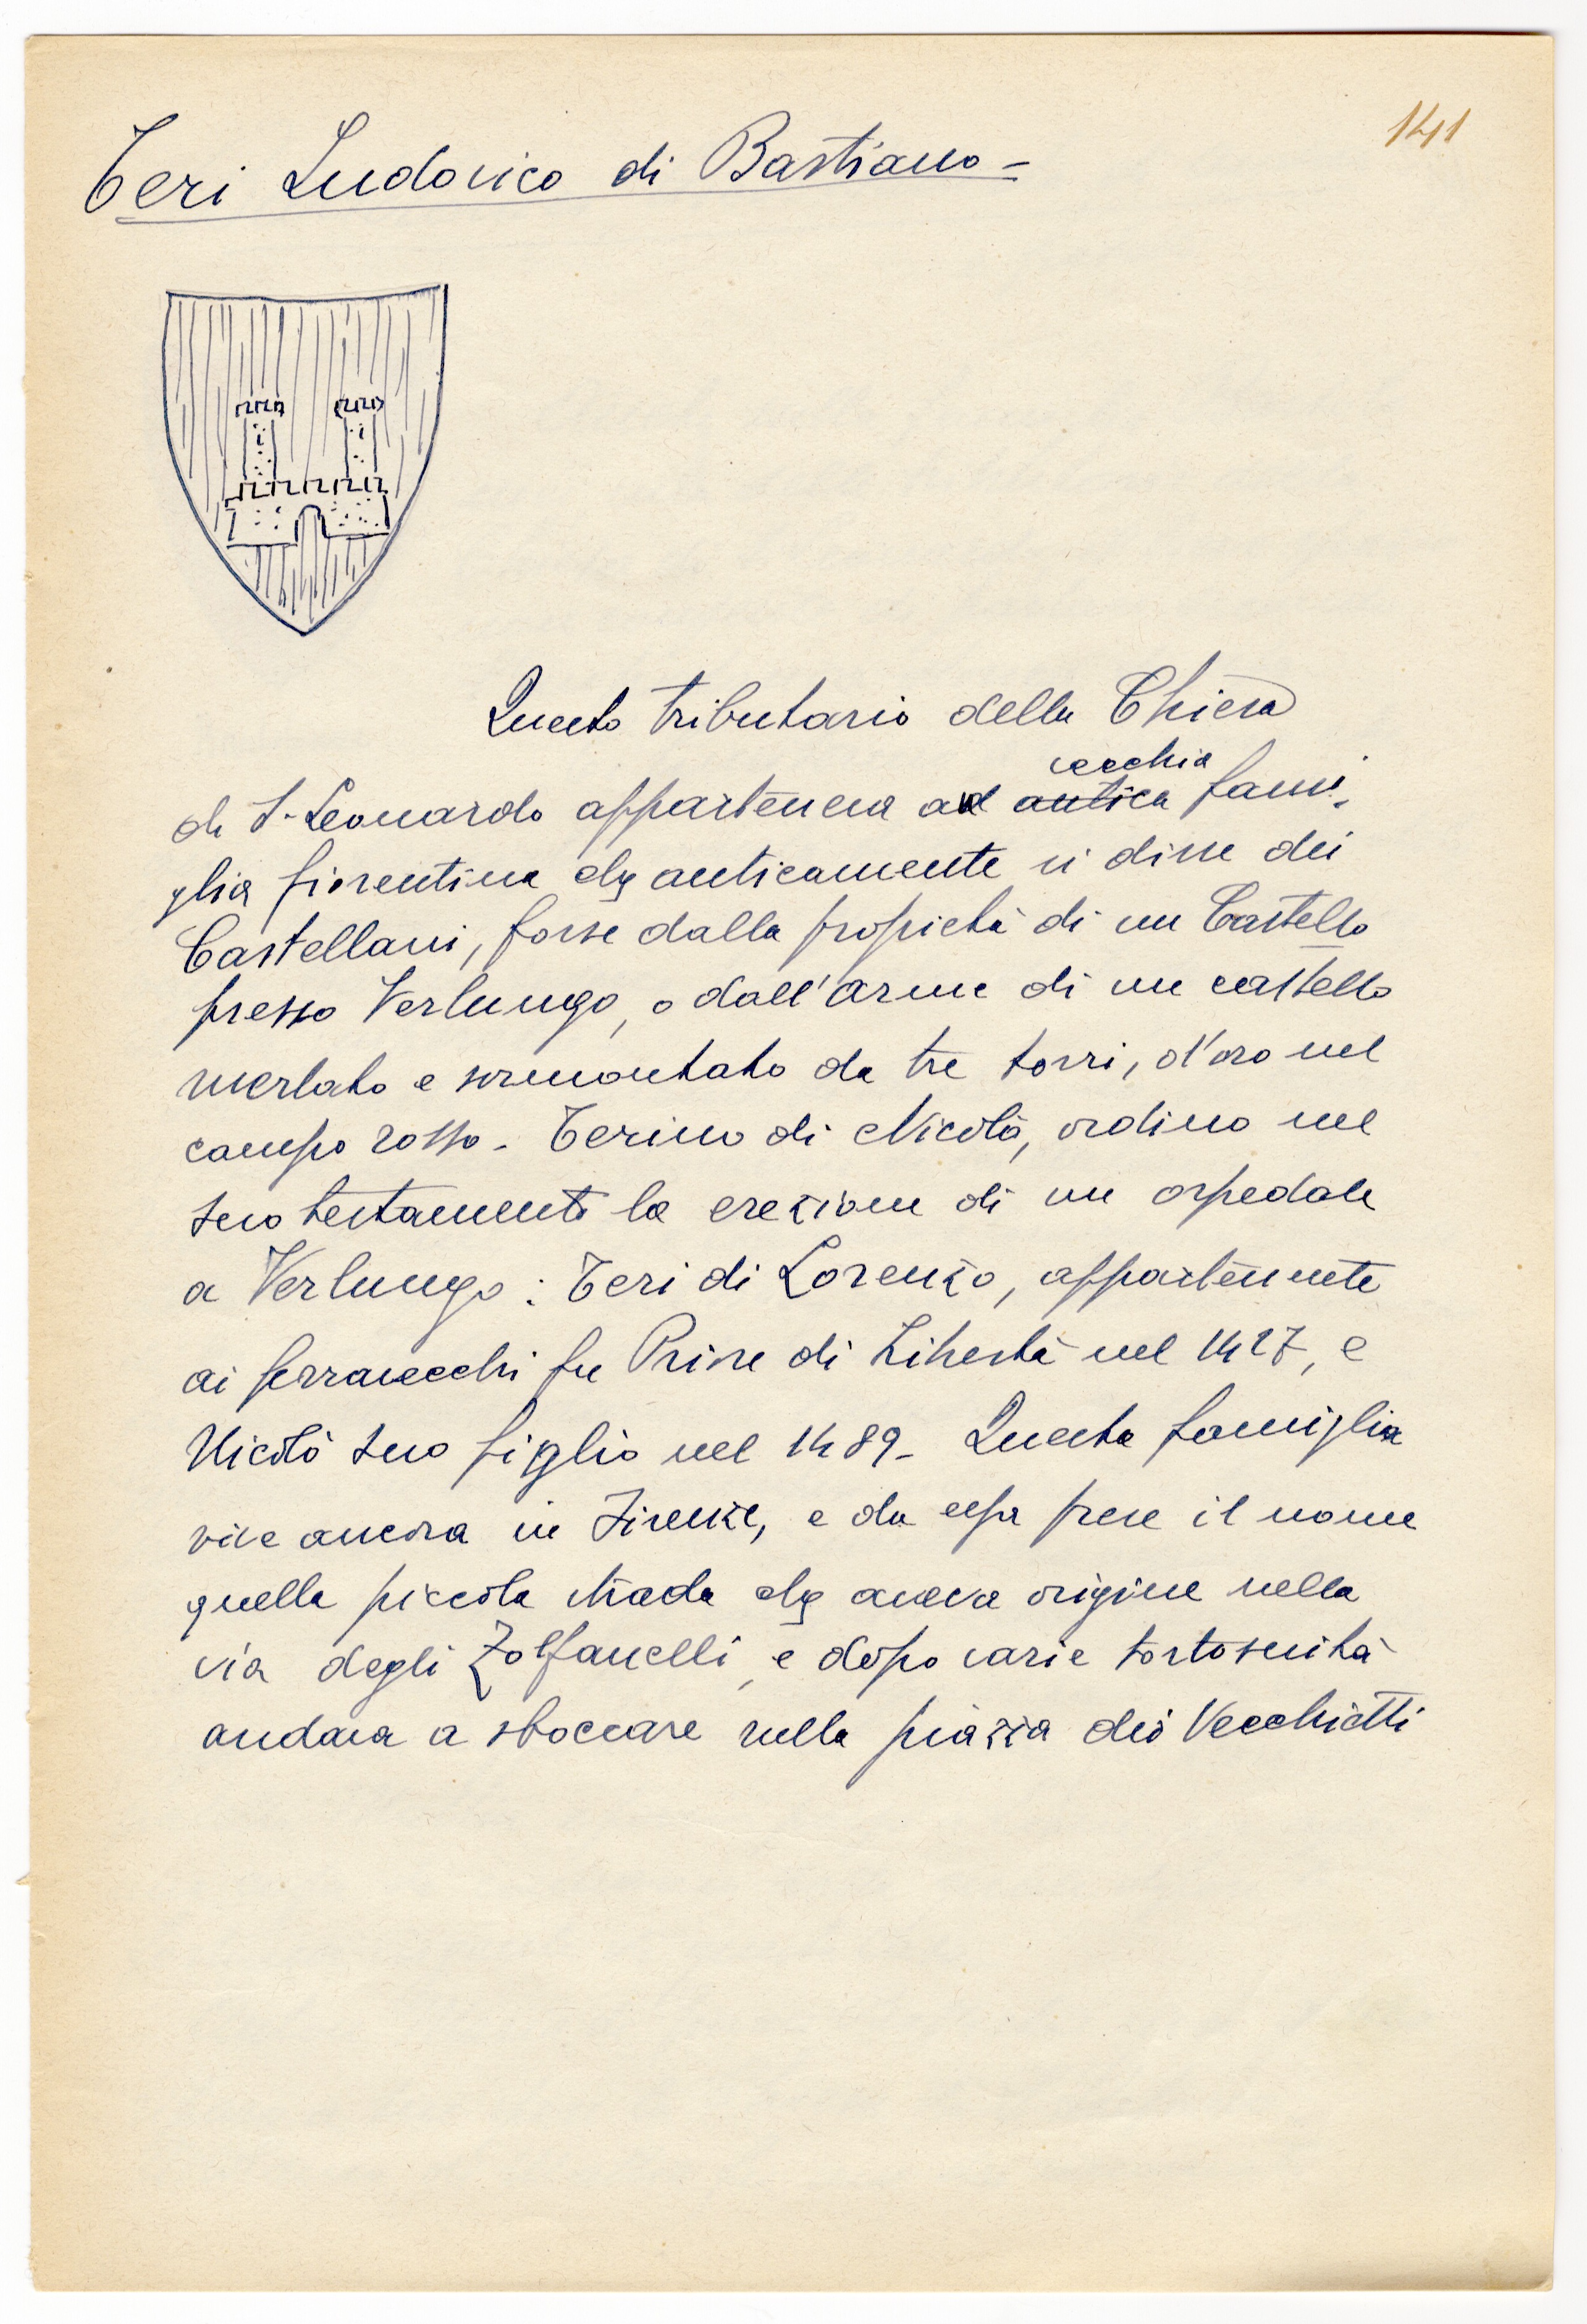 141
Teri Ludovico di Bastiano -
Questo tributario della Chiesa
vecchia
di S. Leonardo apparteneva ad antica fami-
glia fiorentina che anticamente si disse dei
Castellani, forse dalla propietà di un Castello
presso Verlungo, o dall'arme di un castello
merlato e sormontato da tre torri, d'oro nel
campo rosso - Terino di Nicolò, ordino nel
suo testamento la erezione di un ospedale
a Verlungo: Teri di Lorenzo, appartenente
ai ferravecchi fu Priore di Libertà nel 1427, e
Nicolò suo figlio nel 1489 - Questa famiglia
vive ancora in Firenze, e da essa prese il nome
quella piccola strada che aveva origine nella
via degli Zolfanelli, e dopo varie tortosuità
andava a sboccare nella piazza dei Vecchietti